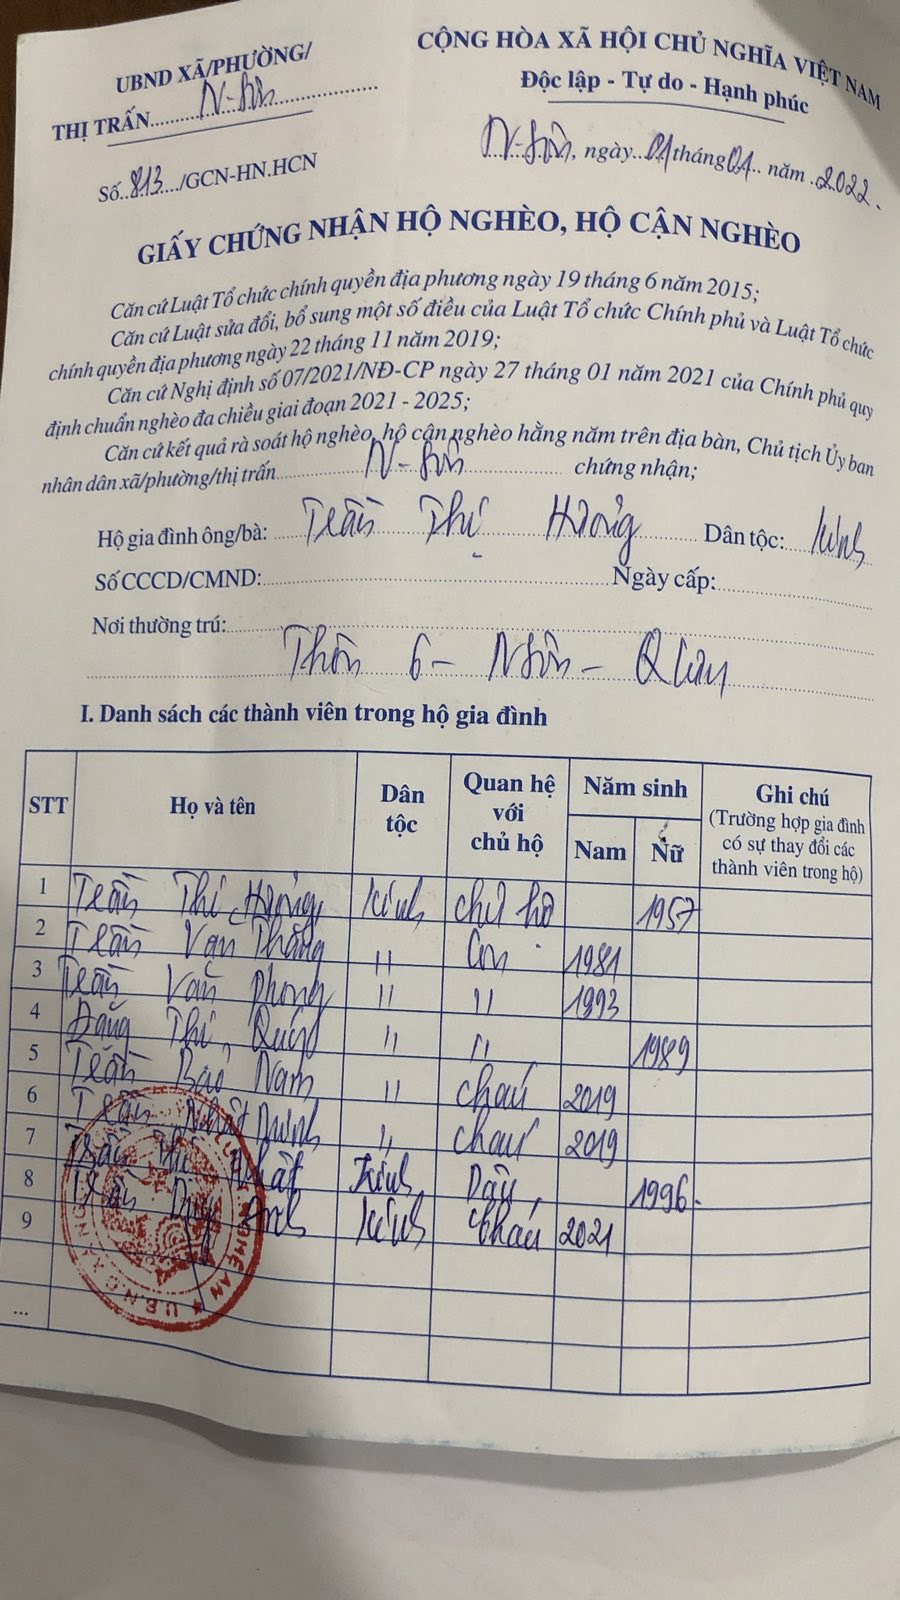 UBND XÃ/PHƯỜNG/
THỊ TRẤN........N-Sơn........
CỘNG HÒA XÃ HỘI CHỦ NGHĨA VIỆT NAM
Độc lập - Tự do - Hạnh phúc
Số..813.../GCN-HN.HCN
N-Sơn, ngày..01 tháng 01.. năm .2022.
GIẤY CHỨNG NHẬN HỘ NGHÈO, HỘ CẬN NGHÈO
Căn cứ Luật Tổ chức chính quyền địa phương ngày 19 tháng 6 năm 2015;
Căn cứ Luật sửa đổi, bổ sung một số điều của Luật Tổ chức Chính phủ và Luật Tổ chức
chính quyền địa phương ngày 22 tháng 11 năm 2019;
Căn cứ Nghị định số 07/2021/NĐ-CP ngày 27 tháng 01 năm 2021 của Chính phủ quy
định chuẩn nghèo đa chiều giai đoạn 2021 - 2025;
Căn cứ kết quả rà soát hộ nghèo, hộ cận nghèo hằng năm trên địa bàn, Chủ tịch Ủy ban
nhân dân xã/phường/thị trấn........N-Sơn........ chứng nhận;
Hộ gia đình ông/bà: Trần Thị Hương Dân tộc: Kinh
Số CCCD/CMND:........ Ngày cấp:........
Nơi thường trú:........
Thôn 6 - Nsơn -
I. Danh sách các thành viên trong hộ gia đình
STT Họ và tên Dân tộc Quan hệ với chủ hộ Năm sinh Ghi chú
Nam Nữ (Trường hợp gia đình có sự thay đổi các thành viên trong hộ)
1 Trần Thị Hương Kinh chủ hộ 1957
2 Trần Văn Thắng " Con 1981
3 Trần Văn Phong " " 1993
4 Đặng Thị " " 1989
5 Trần Bảo Nam " cháu 2019
6 Trần Nhật Minh " cháu 2019
7 Trần Thị Nhật Kinh Dâu 1996
8 Trần Duy Anh Kinh Cháu 2021
9
...